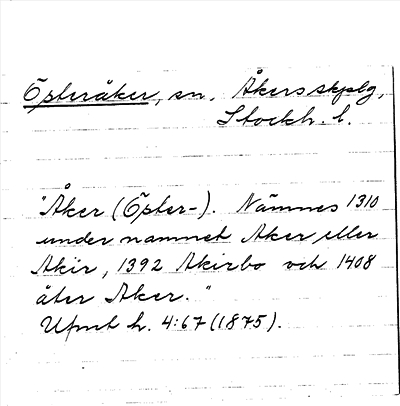 Österåker, sn, Åkers skplg,
Stockh. l.
"Åker (Öster-). Nämnes 1310
under namnet Aker eller
Akir, 1392 Akirbo och 1408
åter Aker."
Upmt h. 4:67 (1875).